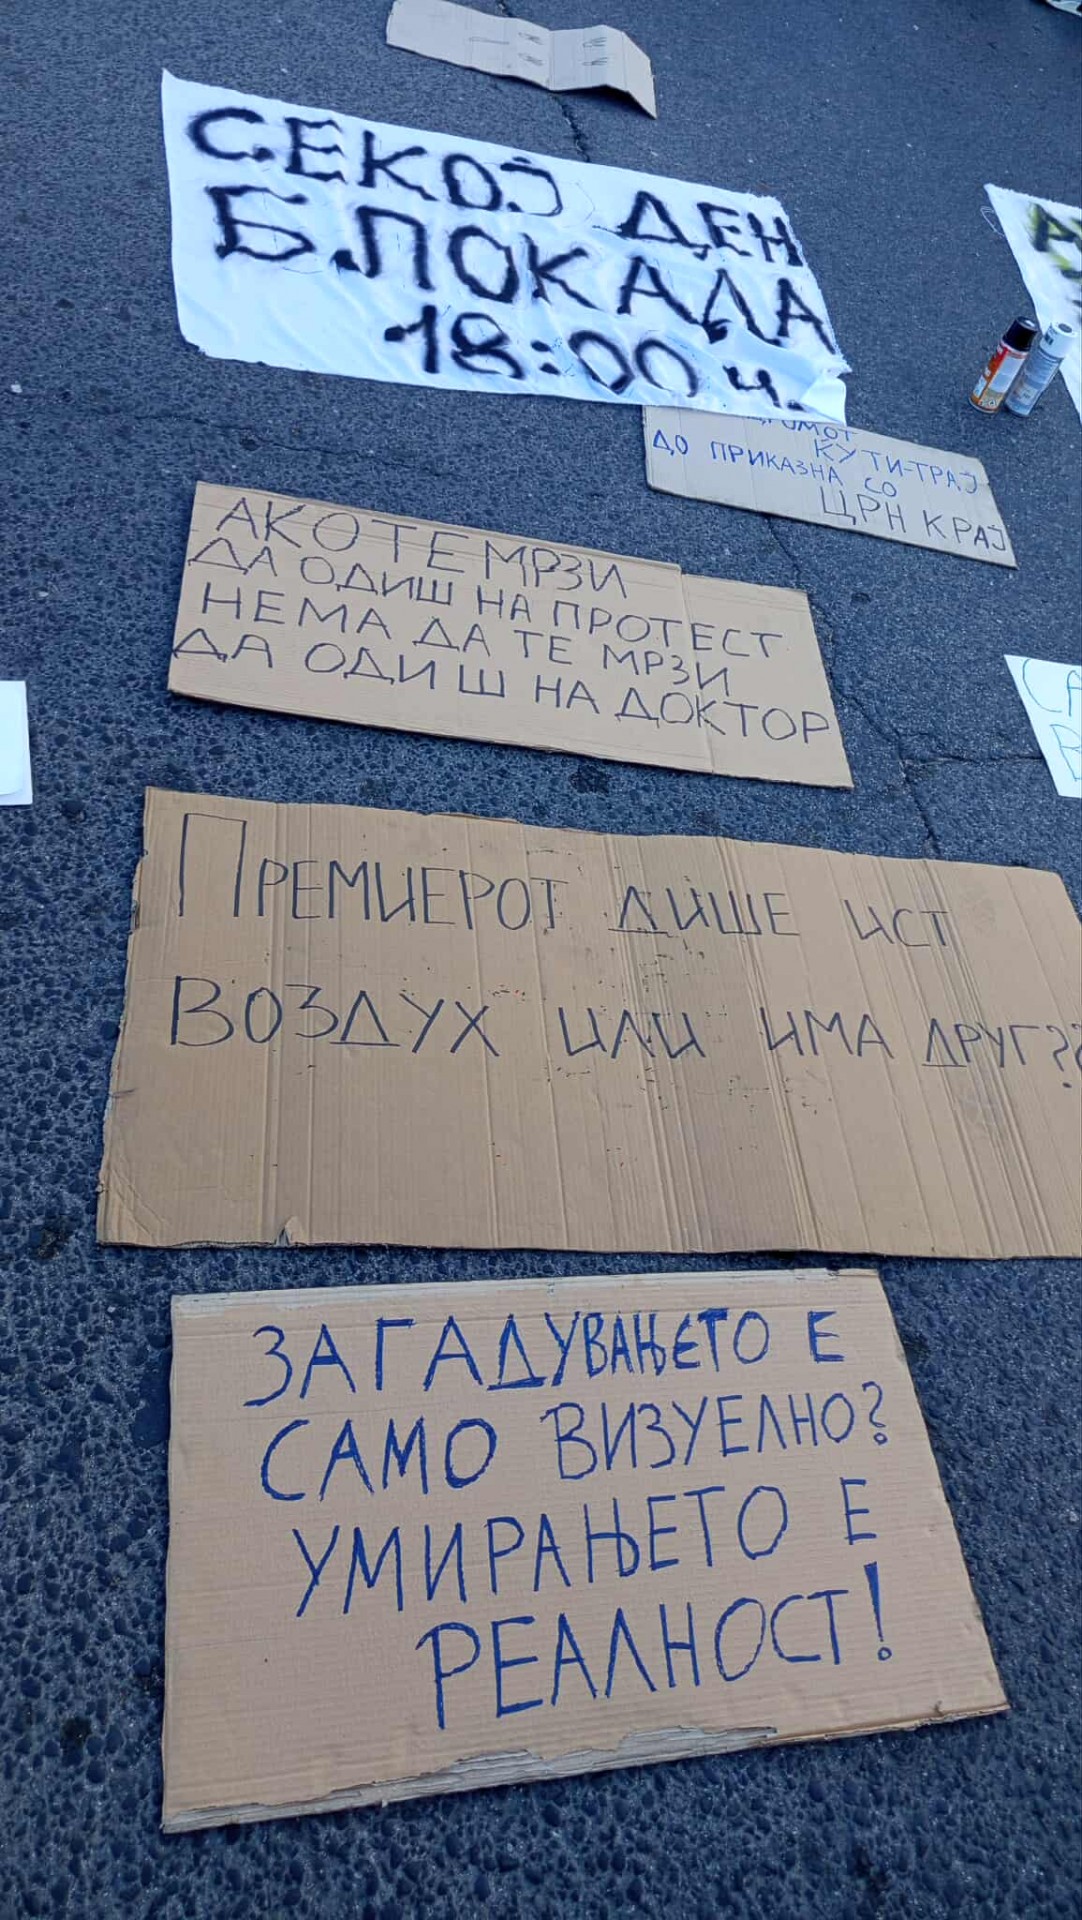 СЕКОЈ ДЕН
БЛОКАДА
18:00 ч.
КУТИ-ТРАЈ
ДО ПРИКАЗНА СО
ЦРН КРАЈ
АКО ТЕ МРЗИ
ДА ОДИШ НА ПРОТЕСТ
НЕМА ДА ТЕ МРЗИ
ДА ОДИШ НА ДОКТОР
ПРЕМИЕРОТ ДИШЕ ИСТ
ВОЗДУХ ИЛИ ИМА ДРУГ??
ЗАГАДУВАЊЕТО Е
САМО ВИЗУЕЛНО?
УМИРАЊЕТО Е
РЕАЛНОСТ!